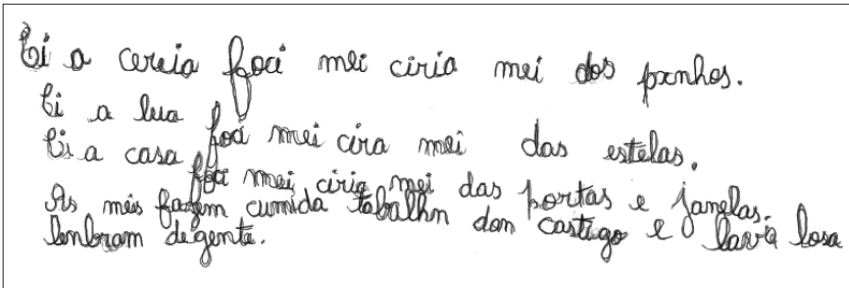 Ci a cereia foci mei ciria mei dos pxnhos.
Ci a lua foci mei cira mei das estelas.
Ci a casa foci mei ciria mei das portas e janelas.
As mẽs fazem cumida tabalhn don castigo e lava losa
lenbram degente.